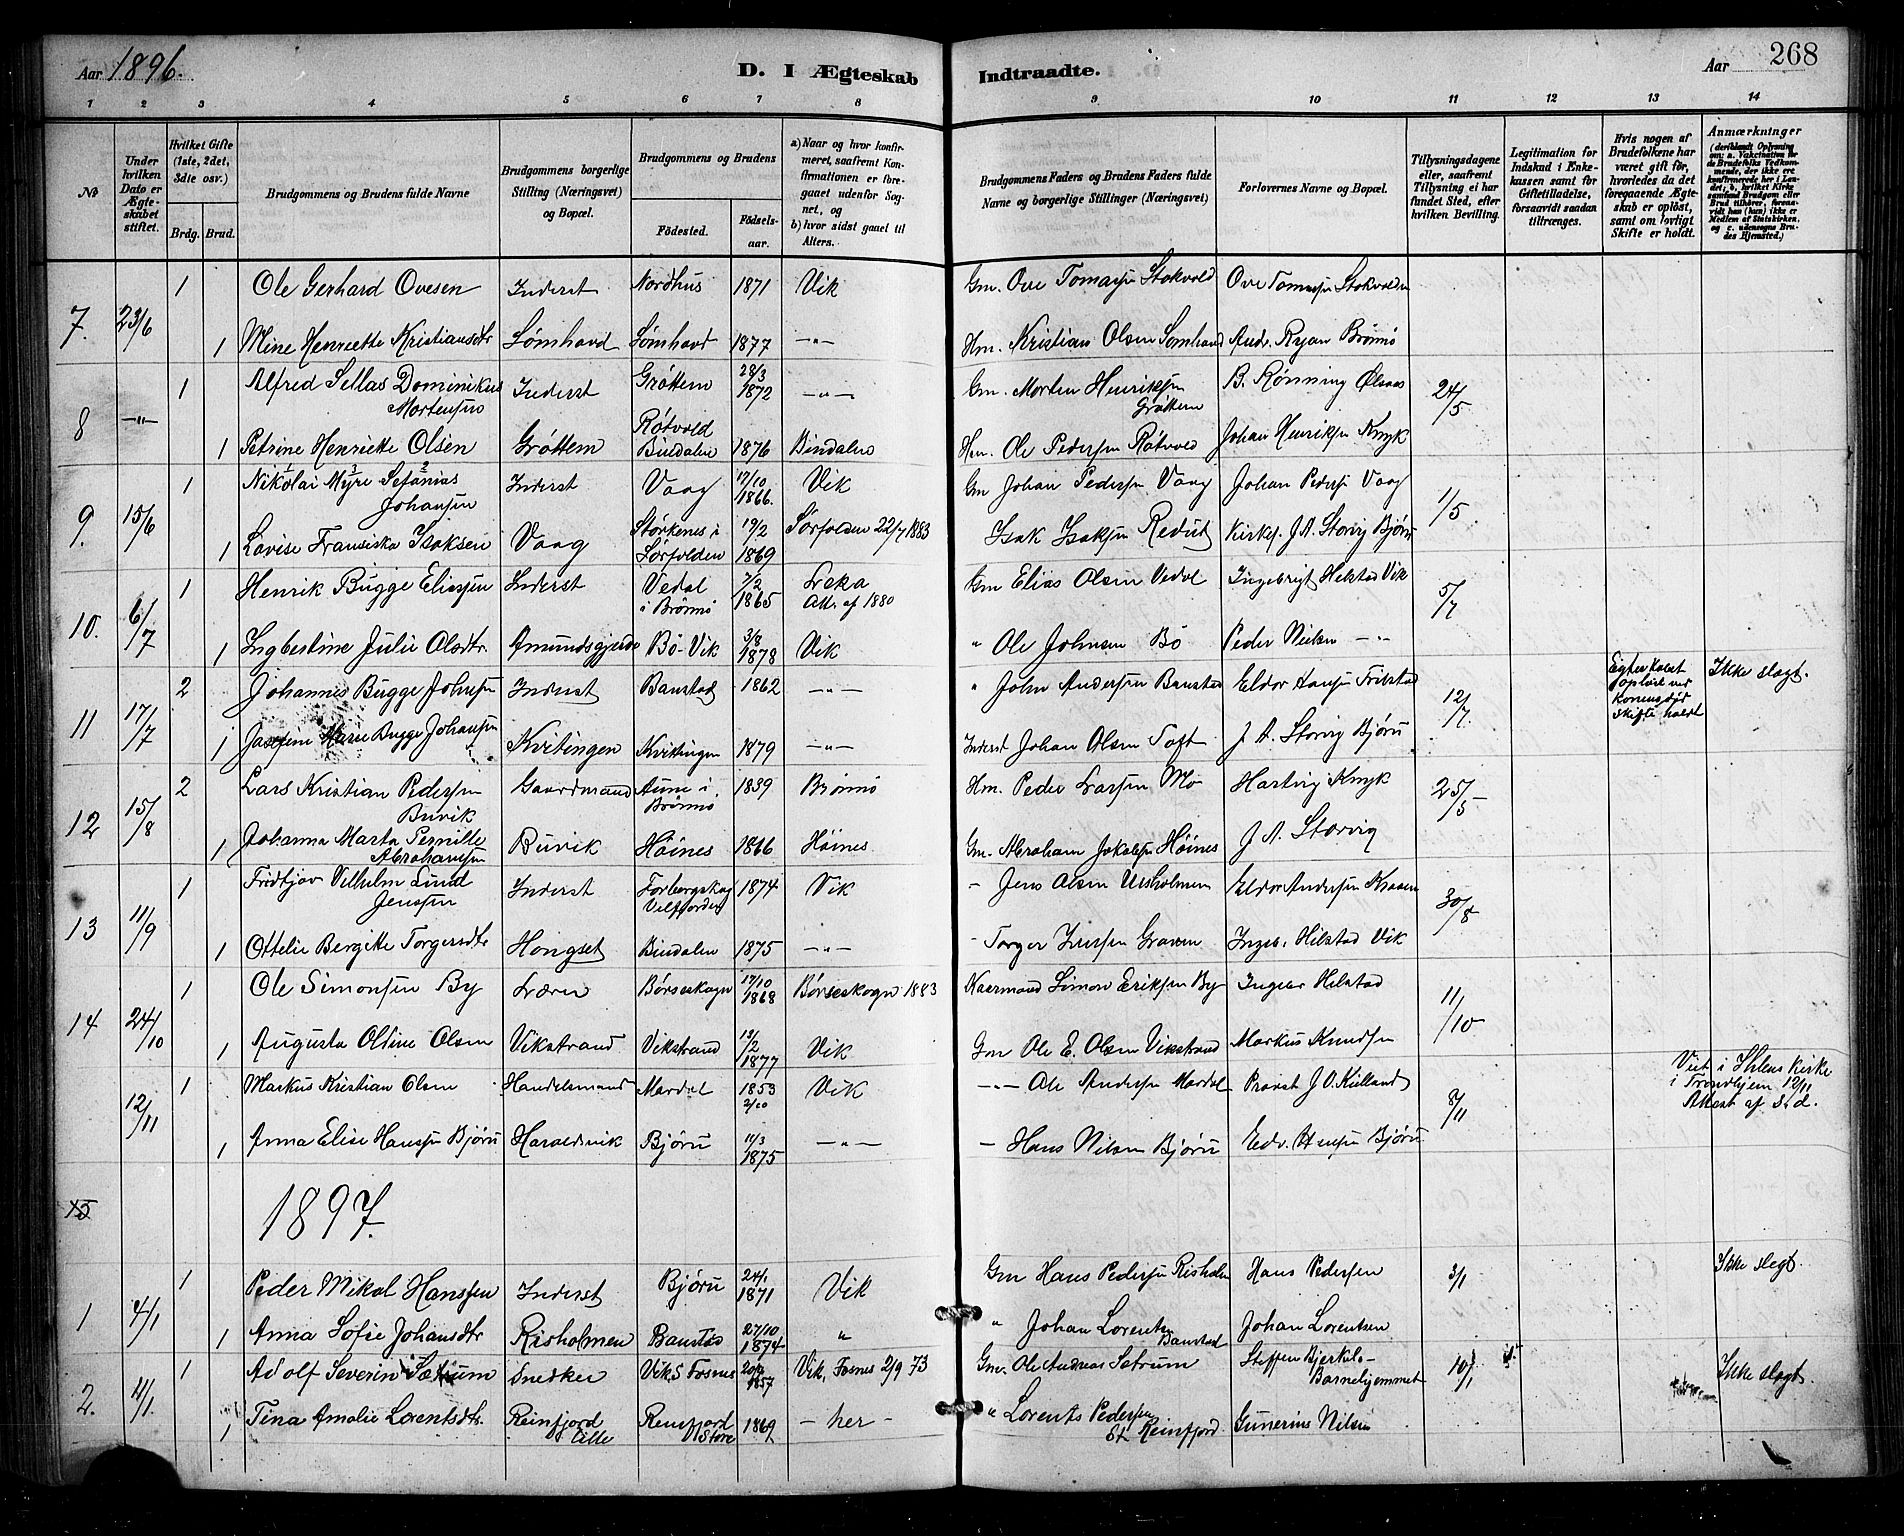 Aar 1896.
D. I Ægteskab Indtraadte.
Aar 268
1 2 3 4 5 6 7 8 9 10 11 12 13 14
No
Under hvilken Dato er Ægteskabet stiftet.
Hvilket Gifte (1ste, 2det, 3die osv.)
Brdg. Brud.
Brudgommens og Brudens fulde Navne
Brudgommens borgerlige Stilling (Næringsvei) og Bopæl.
Brudgommens og Brudens
Fødested. Fødselsaar.
a) Naar og hvor konfirmeret, saafremt Konfirmationen er foregaaet udenfor Sognet, og
b) hvor sidst gaaet til Alters.
Brudgommens Faders og Brudens Faders fulde Navne og borgerlige Stillinger (Næringsvei)
Forlovernes Navne og Bopæl.
Tillysningsdagene eller, saafremt Tillysning ei har fundet Sted, efter hvilken Bevilling.
Legitimation for Indskud i Enkekassen samt for Giftetilladelse, forsaavidt saadan tiltrænges.
Hvis nogen af Brudefolkene har været gift før, hvorledes da det foregaaende Ægteskab er opløst, samt om lovligt Skifte er holdt.
Anmærkninger (deriblandt Oplysning om: a. Vakcination for de Brudefolks Vedkommende, der ikke ere konfirmerede her i Landet; b. hvilket Kirkesamfund Brudgom eller Brud tilhører, forsaavidt han (hun) ikke er Medlem af Statskirken, og c. udensogns Brudes Hjemsted.)
7. 23/6 1 Ole Gerhard Ovesen Inderst Nordhus 1871 Vik Gm. Ove Tomassen Stokvold Ove Tomassen Stokvolden
1 Mine Henriette Kristiansdtr Sømhovd Sømhovd 1877 —"— Hm. Kristian Olsen Sømhovd Andr. Ryan Brønnø
8 —"— 1 Alfred Sellas Dominikus Mortensen Inderst Grøttem 28/3 1872 —"— Gm. Morten Henriksen Grøttem B. Rønning Ølsaas 24/5
1 Petrine Henriette Olsen Grøttem Røtvold Bindalen 1876 Bindalen Hm. Ole Pedersen Røtvold Johan Henriksen Knyk
9. 15/6 1 Nikolai Myre Sefanias Johansen Inderst Vaag 17/10 1866. Vik Gm Johan Pedersen Vaag Johan Pedersen Vaag 1/5
1 Lovise Fransiska Isaksen Vaag Størkenes i Sørfolden 19/2 1869 Sørfolden 22/7 1883 Isak Isaksen Kirkes. J. A. Storvig Bjørn
10. 6/7 1 Henrik Bugge Eliassen Inderst Vedal i Brønnø 7/2 1865 Leka Att. af 1880 Gm Elias Olsen Vedal Ingebrigt Helstad Vik 5/7
1 Ingbertine Julie Olsdtr. Amundsgjerde Bö-Vik 3/8 1878 Vik " Ole Johnsen Bö Peder Nielsen —"—
11 17/7 2 Johannes Bugge Johnsen Inderst Banstad 1862 —"— " John Andersen Banstad Eldor Hansen Fribstad 12/7 Egteskabet opløst ved Konens død Skifte holdt Ikke slægt.
1 Josefine Marie Bugge Johansen Kvitingen Kvitingen 1879 —"— Inderst Johan Olsen Toft J. A. Storvig Bjørn
12 15/8 2 Lars Kristian Pedersen Buvik Gaardmand Aune i Brønnø 1839 Brønnø Hm. Peder Larsen Mo Hartvig Knyk 25/5
1 Johanna Marta Pernille Abrahamsen Buvik Høines 1866 Høines Gm. Abraham Jakobsen Høines J. A. Storvig
13 11/9 1 Fridtjov Vilhelm Lund Jenssen Inderst Forbergskog Velfjorden 1874 Vik — Jens Olsen Ursholmen Eldor Andersen 30/8
1 Ottelie Bergitte Torgersdtr Hongset Bindalen 1875 —"— — Torger Graven Ingeb. Helstad Vik
14 24/10 1 Ole Simonsen By Lærer Børseskogn 17/10 1868 Børseskogn 1883 Kaarmand Simon Eriksen By Ingebr Helstad 11/10
1 Augusta Oldine Olsen Vikstrand Vikstrand 19/2 1877 Vik Gm Ole E. Olsen Vikstrand Markus Knudsen
12/11 1 Markus Kristian Olsen Handelsmand Mardal 1853 2/10 Vik —"— Ole Andersen Mardal Provst J. O. Kulland 8/11 Viet i Ihlens Kirke i Trondhjem 12/11 Attest af s. d.
1 Anna Elise Hanssen Bjørn Haraldsvik Bjørn 11/3 1875 —"— — Hans Nilsen Bjørn Edv. Hansen Bjørn
15
1897.
1 4/1 1 Peder Mikal Hanssen Inderst Bjørn 24/1 1871 Vik Gm Hans Pedersen Risholm Hans Pedersen 3/1 Ikke slegt.
1 Anna Sofie Johansdtr Risholmen Banstad 27/10 1874 " " Johan Lorentsen Banstad Johan Lorentsen
2. 4/1. 1 Adolf Severin Sætrum Snedker Vik S Fosnes 1857 Vik, Fosnes 2/9 73 Gm. Ole Andreas Sætrum Steffen Bjerkelo- Barnehjemmet 10/1 Ikke slægt.
1 Tina Amalie Lorentsdtr. Reinfjord Lille Reinfjord Store 1869 — her — " Lorents Pedersen St. Reinfjord Gunerius Nilsen